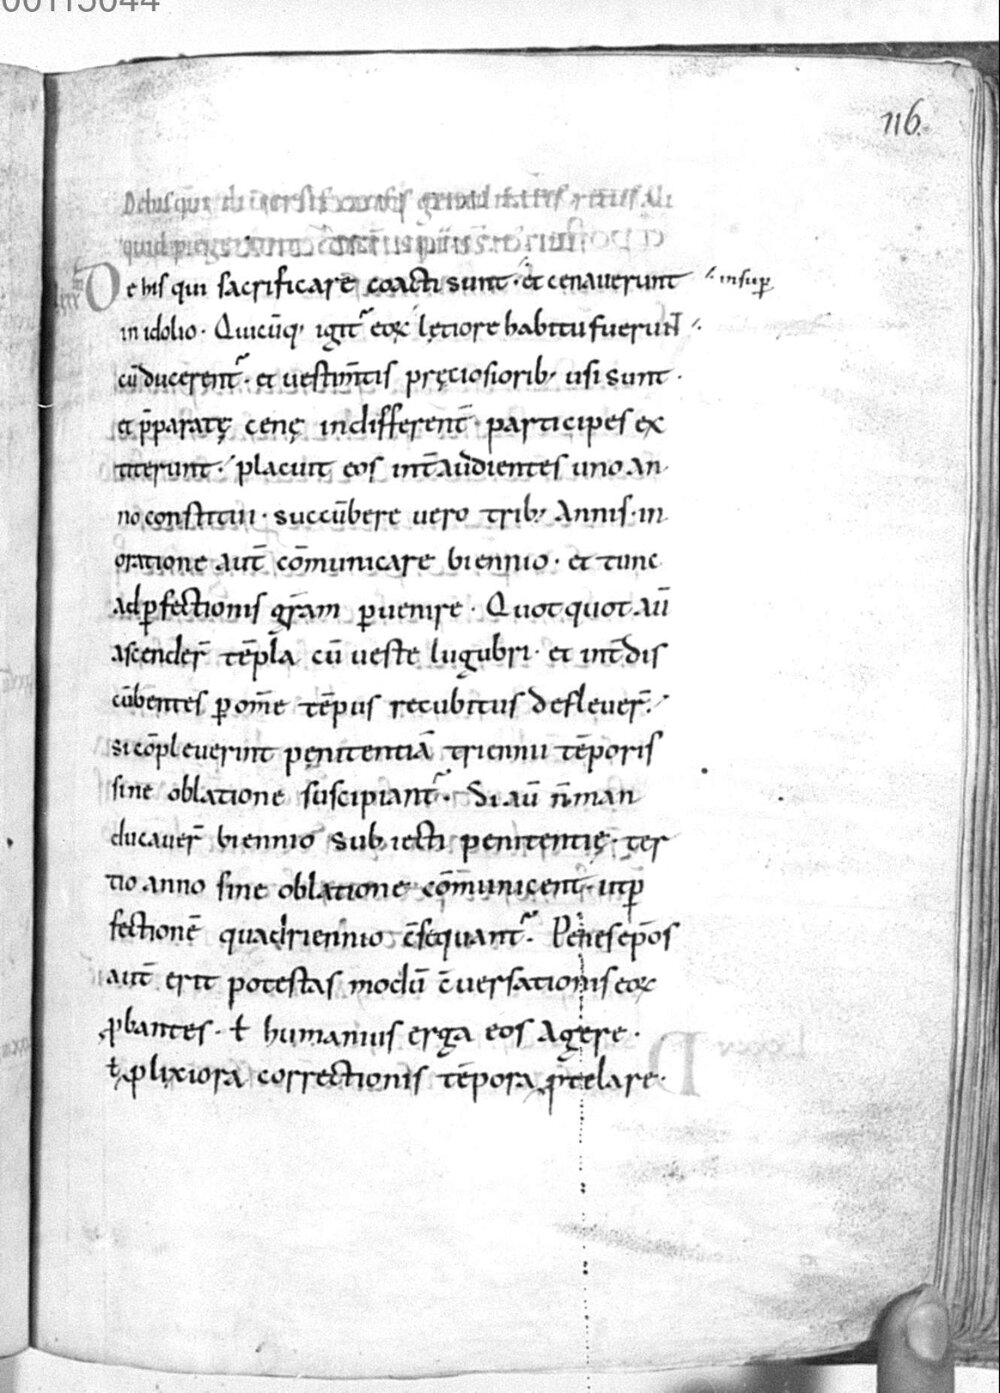 00115044
116.
De his qui sacrificare coacti sunt · et cenaverunt insup̄
in idolio · Quicūq; igit̄ eoꝝ lętiore habitu fuerunt
cū ducerent̄ · et vestim̄tis pręciosiorib; usi sunt ·
et p̄paratę cenę indifferent̄ participes ex
titerunt · placuit eos int̄ audientes uno an
no constitui · succūbere vero trib; annis · in
oratione aut̄ cōmunicare biennio · et tunc
ad ꝑfectionis gr̄am ꝑvenire · Quotquot aū
ascender̄ tēpla cū veste lugubri · et int̄ dis
cūbentes ꝑ om̄e tēpus recubitus deflever̄ ·
si cōpleverint penitentiā triennii tēporis
sine oblatione suscipiant̄ · Si aū n̄ man
ducaver̄ biennio subiecti penitentię · ter
tio anno sine oblatione cōmunicent · ut ꝑ
fectionē quadriennio c̄sequant̄ · Penes ep̄os
aut̄ erit potestas modū c̄versationis eoꝝ
ꝓbantes · ł humanius erga eos agere ·
ł ꝓlixiora correctionis tēpora ꝓtelare ·